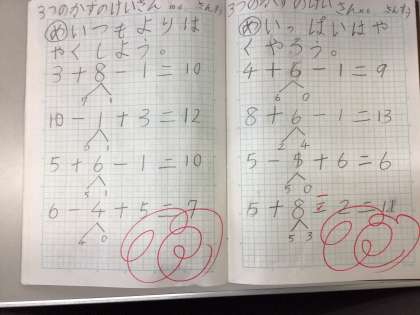 3つのかずのけいさん
めいつもよりは
やくしよう。
3+8-1=10
7 1
10-1+3=12
5+6-1=10
5 1
6-4+5=7
4 0
3つのかずのけいさん
めいっぱいはや
くやろう。
4+6-1=9
6 0
8+6-1=13
2 4
5-5+6=6
5 0
5+8-2=11
5 3